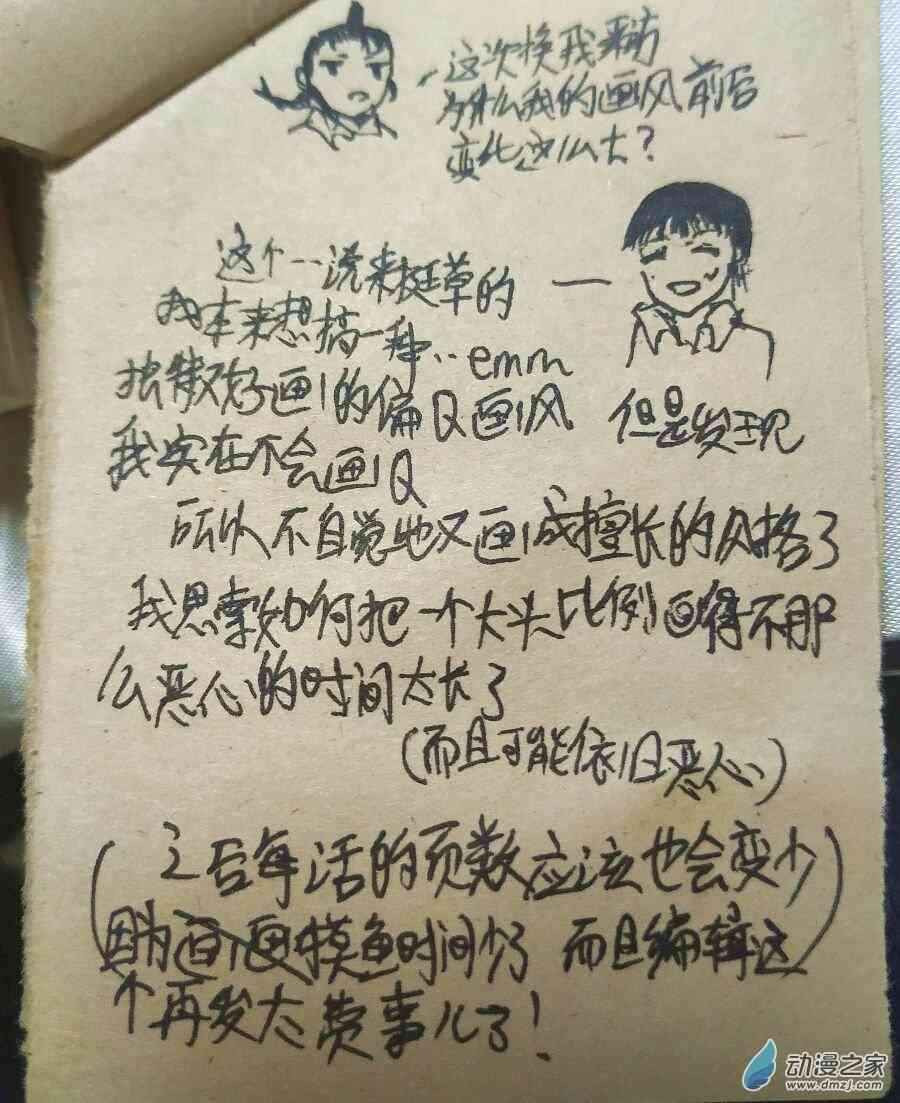 这次换我来访
为什么我的画风前后
变化这么大？
这个…说来挺草的
我本来想搞一种…emm
独特又好画的偏Q画风
但是发现
我实在不会画Q
所以不自觉地又画成擅长的风格了
我思索如何把一个大头比例画得不那
么恶心的时间太长了
（而且可能依旧恶心）
（之后每话的页数应该也会变少
因为画画摸鱼时间少了 而且编辑这
个再发太费事儿了！）
动漫之家
www.dmzj.com